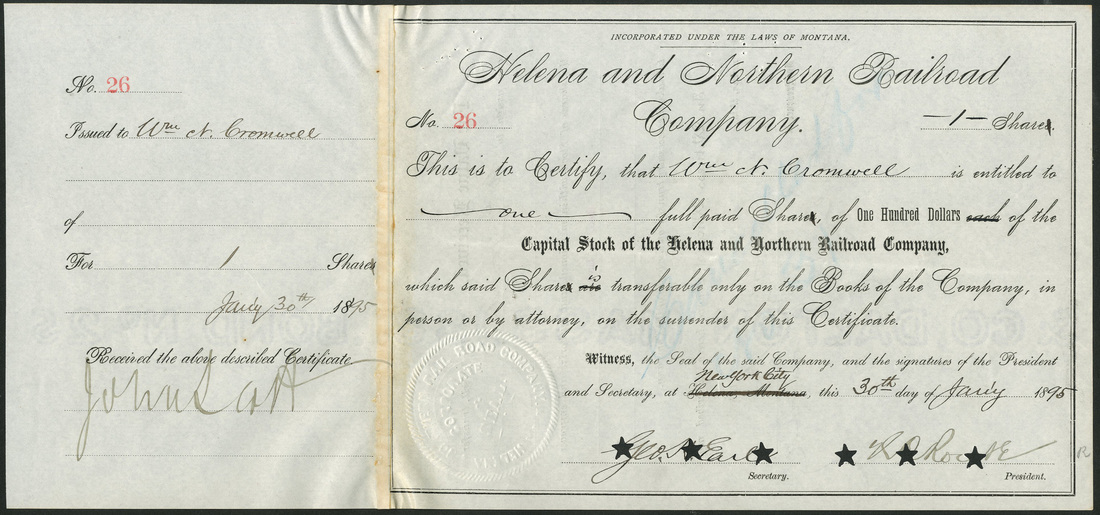 No. 26
Issued to Wm N. Cromwell
of
For 1 Shares
Jany 30th 1895
Received the above described Certificate
INCORPORATED UNDER THE LAWS OF MONTANA.
Helena and Northern Railroad
Company.
No. 26
—1— Shares.
This is to Certify, that Wm N. Cromwell is entitled to
one full paid Shares, of One Hundred Dollars each of the
Capital Stock of the Helena and Northern Railroad Company,
which said Shares are is transferable only on the Books of the Company, in
person or by attorney, on the surrender of this Certificate.
Witness, the Seal of the said Company, and the signatures of the President
New York City
and Secretary, at Helena, Montana, this 30th day of Jany 1895
Secretary.
President.